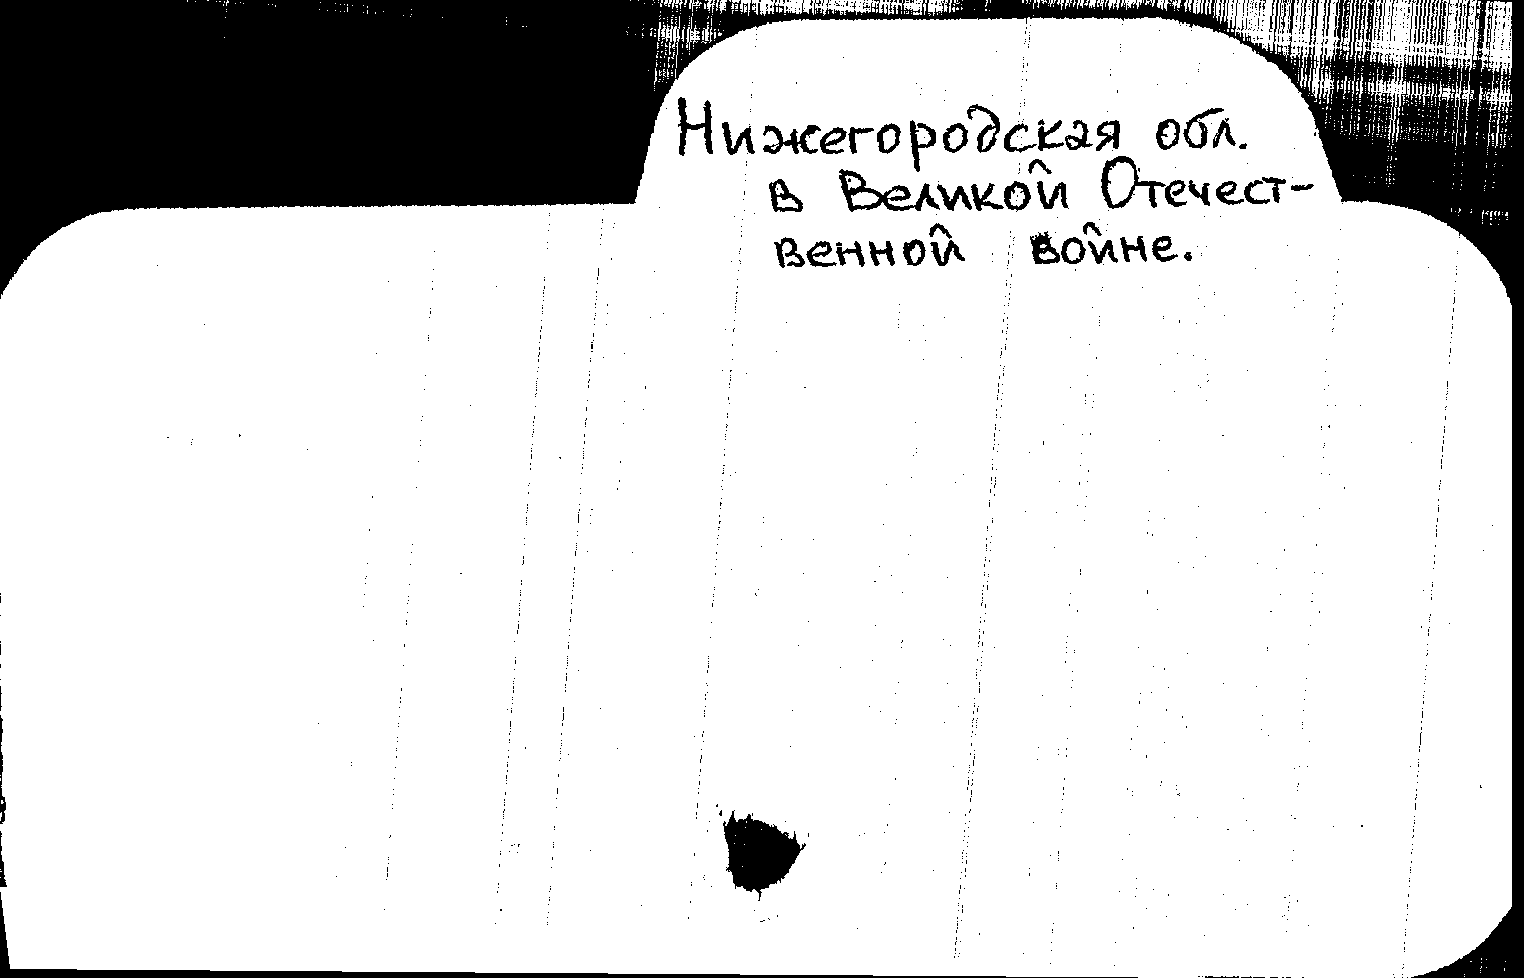 Нижегородская обл.
в Великой Отечест-
венной войне.